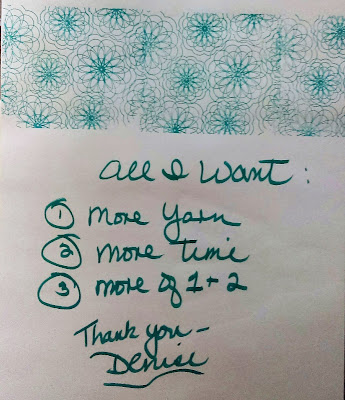 All I Want:
① More Yarn
② More Time
③ More of 1 + 2
Thank you -
Denise